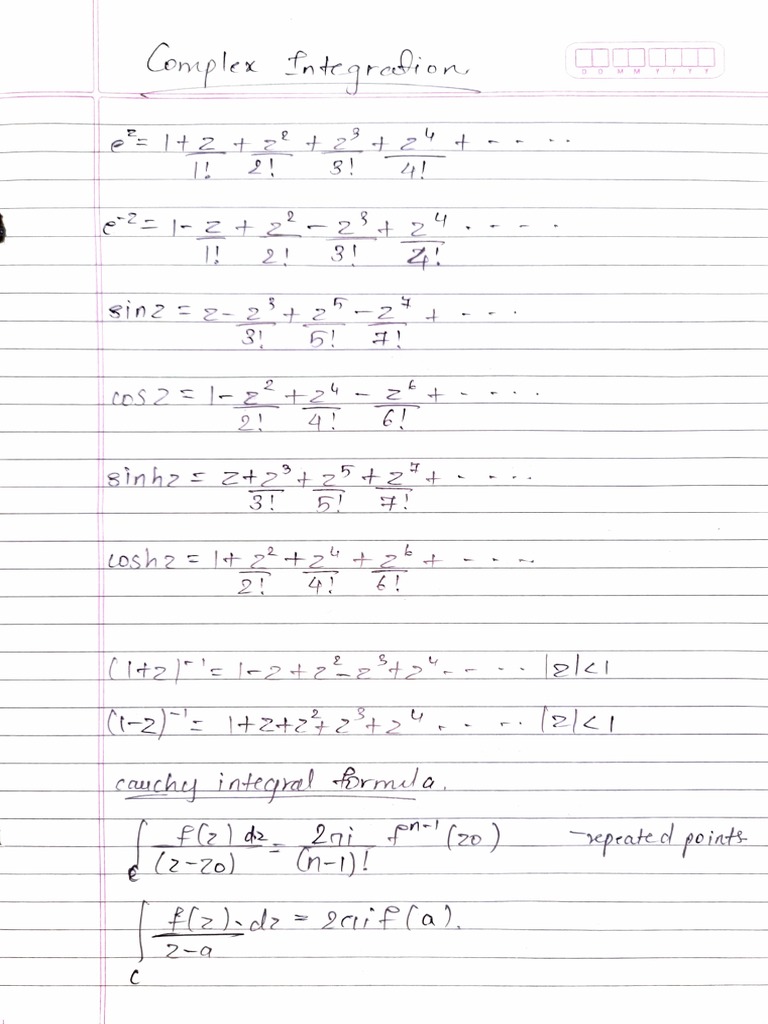 Complex Integration
D D M M Y Y Y Y
e^z = 1 + z/1! + z²/2! + z³/3! + z⁴/4! + - - - -
e^-z = 1 - z/1! + z²/2! - z³/3! + z⁴/4! - - - -
sinz = z - z³/3! + z⁵/5! - z⁷/7! + - - -
cosz = 1 - z²/2! + z⁴/4! - z⁶/6! + - - - -
sinhz = z + z³/3! + z⁵/5! + z⁷/7! + - - - -
coshz = 1 + z²/2! + z⁴/4! + z⁶/6! + - - - -
(1+z)⁻¹ = 1 - z + z² - z³ + z⁴ - - - - |z|<1
(1-z)⁻¹ = 1 + z + z² + z³ + z⁴ - - - - |z|<1
cauchy integral formula.
∫c f(z) dz/(z-z0) = 2πi/(n-1)! f^n-1 (z0) - repeated points
∫c f(z)/z-a . dz = 2πi f(a).